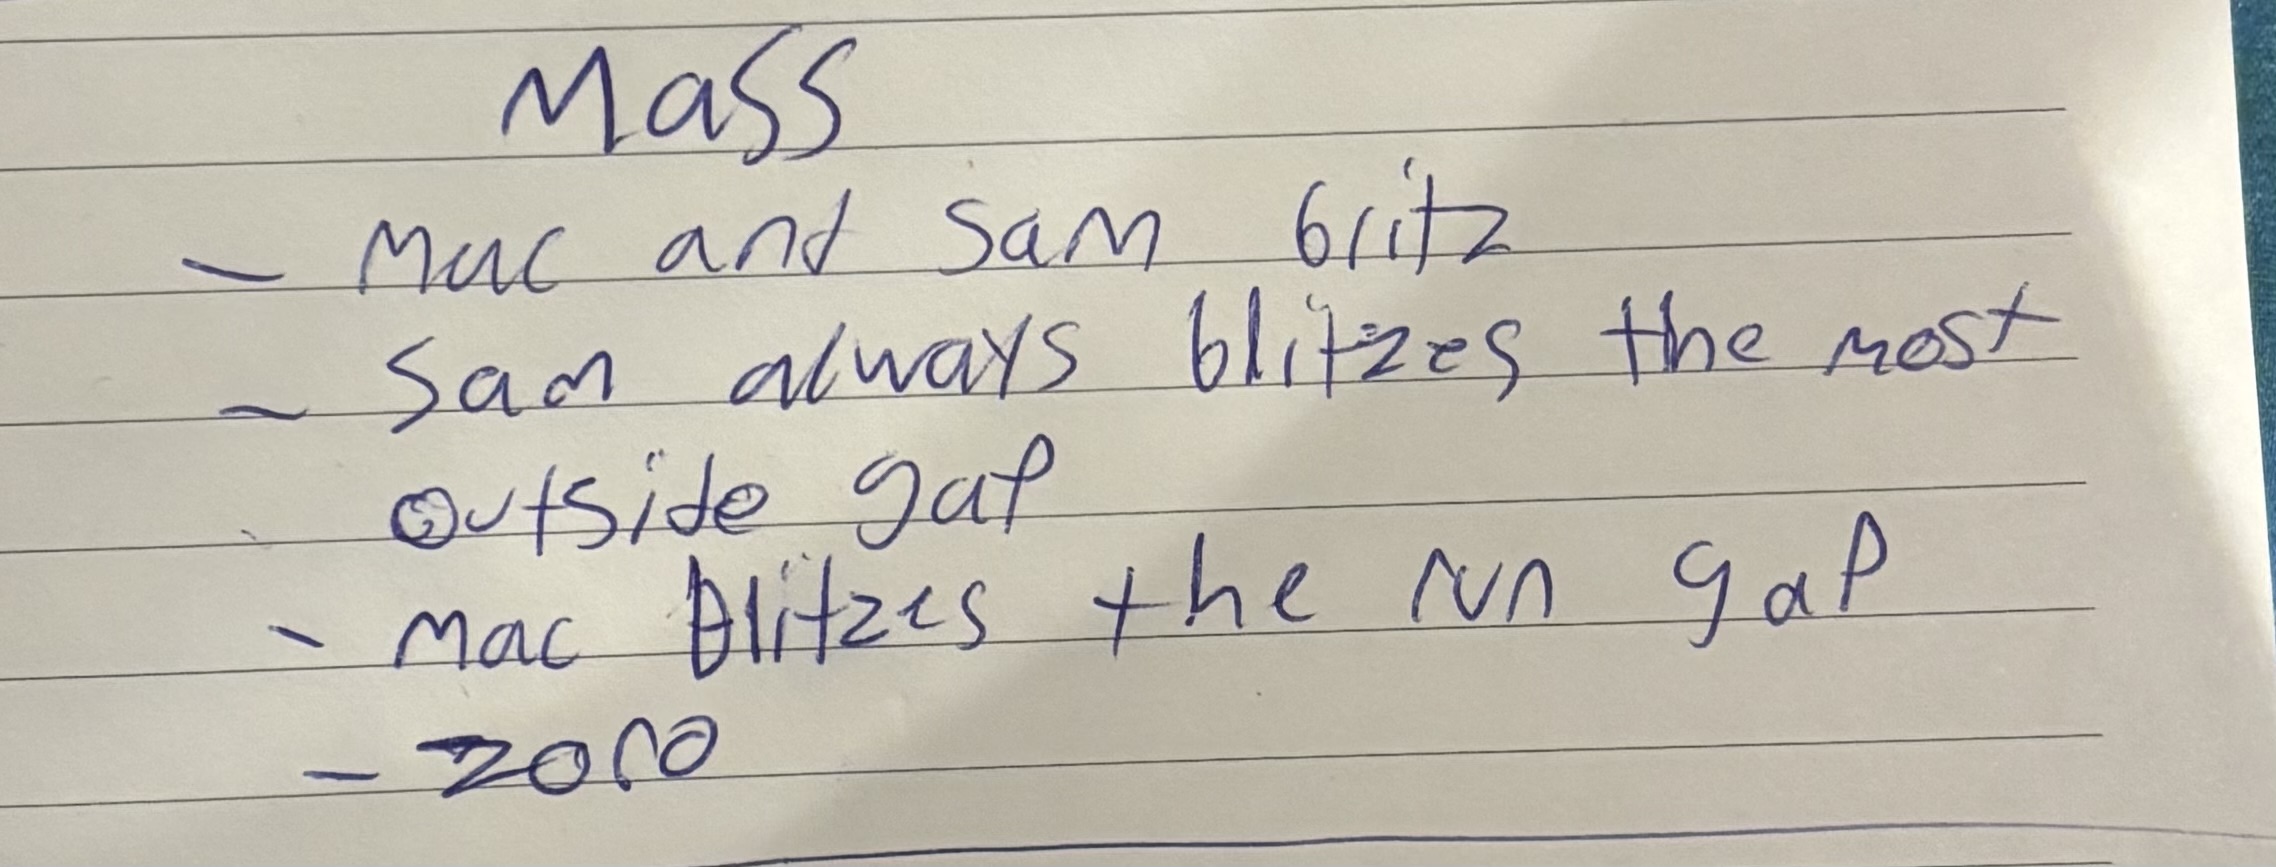 Mass
- Mac and Sam blitz
- Sam always blitzes the most
outside gap
- Mac Blitzes the run gap
- zoro